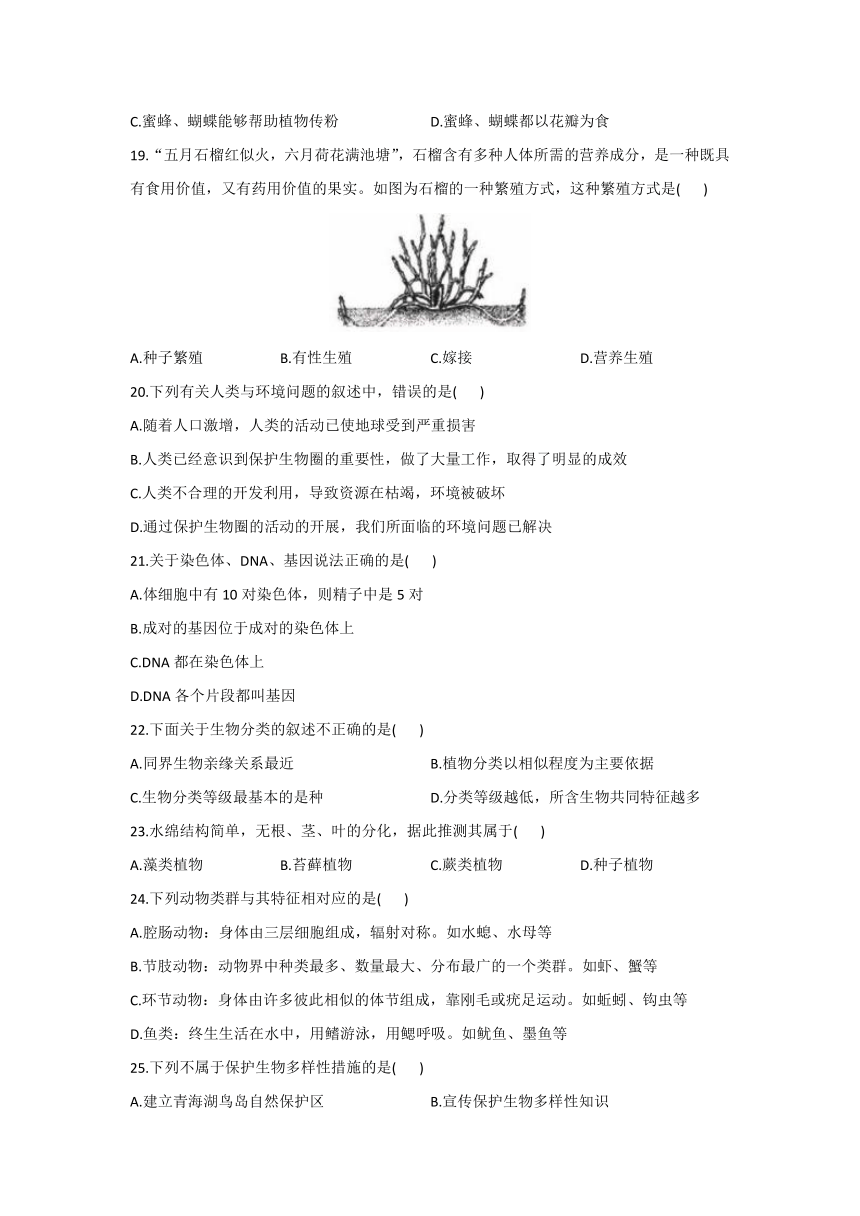 C.蜜蜂、蝴蝶能够帮助植物传粉 D.蜜蜂、蝴蝶都以花瓣为食
19.“五月石榴红似火，六月荷花满池塘”，石榴含有多种人体所需的营养成分，是一种既具
有食用价值，又有药用价值的果实。如图为石榴的一种繁殖方式，这种繁殖方式是( )
A.种子繁殖 B.有性生殖 C.嫁接 D.营养生殖
20.下列有关人类与环境问题的叙述中，错误的是( )
A.随着人口激增，人类的活动已使地球受到严重损害
B.人类已经意识到保护生物圈的重要性，做了大量工作，取得了明显的成效
C.人类不合理的开发利用，导致资源在枯竭，环境被破坏
D.通过保护生物圈的活动的开展，我们所面临的环境问题已解决
21.关于染色体、DNA、基因说法正确的是( )
A.体细胞中有 10 对染色体，则精子中是 5 对
B.成对的基因位于成对的染色体上
C.DNA 都在染色体上
D.DNA 各个片段都叫基因
22.下面关于生物分类的叙述不正确的是( )
A.同界生物亲缘关系最近 B.植物分类以相似程度为主要依据
C.生物分类等级最基本的是种 D.分类等级越低，所含生物共同特征越多
23.水绵结构简单，无根、茎、叶的分化，据此推测其属于( )
A.藻类植物 B.苔藓植物 C.蕨类植物 D.种子植物
24.下列动物类群与其特征相对应的是( )
A.腔肠动物：身体由三层细胞组成，辐射对称。如水螅、水母等
B.节肢动物：动物界中种类最多、数量最大、分布最广的一个类群。如虾、蟹等
C.环节动物：身体由许多彼此相似的体节组成，靠刚毛或疣足运动。如蚯蚓、钩虫等
D.鱼类：终生生活在水中，用鳍游泳，用鳃呼吸。如鱿鱼、墨鱼等
25.下列不属于保护生物多样性措施的是( )
A.建立青海湖鸟岛自然保护区 B.宣传保护生物多样性知识